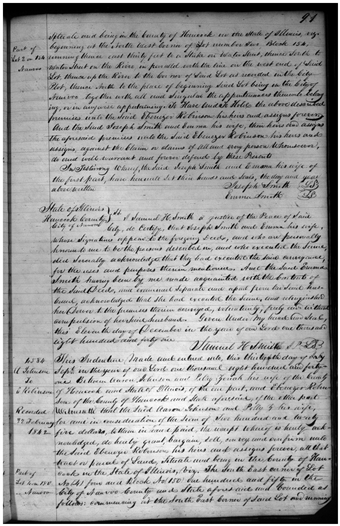 91
Situate and being in the County of Hancock in the State of Illinois, viz
Part of
beginning at the North West Corner of Lot number Block 154
Lot 2 in 154
running thence east thirty feet to a Stake on Water Street, thence South to
Nauvoo
Water Street on the River in parallel with the line on the west end of Said
Lot thence up the River to the Corner of Said Lot as recorded in the City
Plot, thence North to the place of beginning Said Lot being in the City of
Nauvoo together with all and Singular the appurtenances thereunto belong
ing, or in anywise appertaining: To Have and To Hold the above described
premises unto the Said Ebenezer Robinson his heirs and assigns forever
And the Said Joseph Smith and Emma his wife, their heirs
the aforesaid premises unto the Said Ebenezer Robinson his heirs and
assigns, against the Claim or claims of all and every person whomsoever,
do and will warrant and forever defend by these Presents
In Testimony Whereof, the Said Joseph Smith and Emma his wife of
the first part, have hereunto Set their hands and Seals, the day and year
above written
Joseph Smith
Emma Smith
State of Illinois
Hancock County
City of Nauvoo
I Samuel H. Smith a justice of the Peace of Said
City, do Certify, that Joseph Smith and Emma his wife,
whose Signatures appear to the foregoing Deed, and who are personally
known to me to be the persons described in, and who executed the Same,
did Severally acknowledge that they had executed the Said conveyance,
for the uses and purposes therein mentioned. And the Said Emma
Smith having been by me made acquainted with the Contents of
the Said Deed, and examined Separate and apart from her Said hus-
band, acknowledged that She had executed the Same, and relinquished
her Dower to the premises therein conveyed, voluntarily, freely and without
compulsion of her Said husband. Given Under my hand and Seal
this Eleventh day of December in the year of our Lord one thousand
eight hundred and forty one
Samuel H. Smith J. P.
This Indenture, Made and entered into this thirtieth day of
Sept. in the year of our Lord one thousand eight hundred and forty-
Johnson
one Between Aaron Johnson and Polly his wife of the County
To
of Hancock and State of Illinois, of the one part, and Ebenezer Robin
E Robinson
son of the County of Hancock and State aforesaid, of the other part
Recorded
Witnesseth that the Said Aaron Johnson and Polly his wife,
22 February
for and in consideration of the Sum of Five hundred and Seventy
1842
five dollars, to them in hand paid, the receipt whereof is hereby ack-
nowledged, do hereby grant bargain, Sell, convey and confirm unto
the Said Ebenezer Robinson his heirs and assigns forever, all that
tract or parcel of Land, Situate and being in the County of Han-
cock in the State of Illinois, Viz: The South East Corner of Lot
Part of
No. four and Block No 150 One hundred and fifty in the
Nauvoo
City of Nauvoo County and State aforesaid and bounded as
follows, commencing at the South East Corner of Said Lot and running